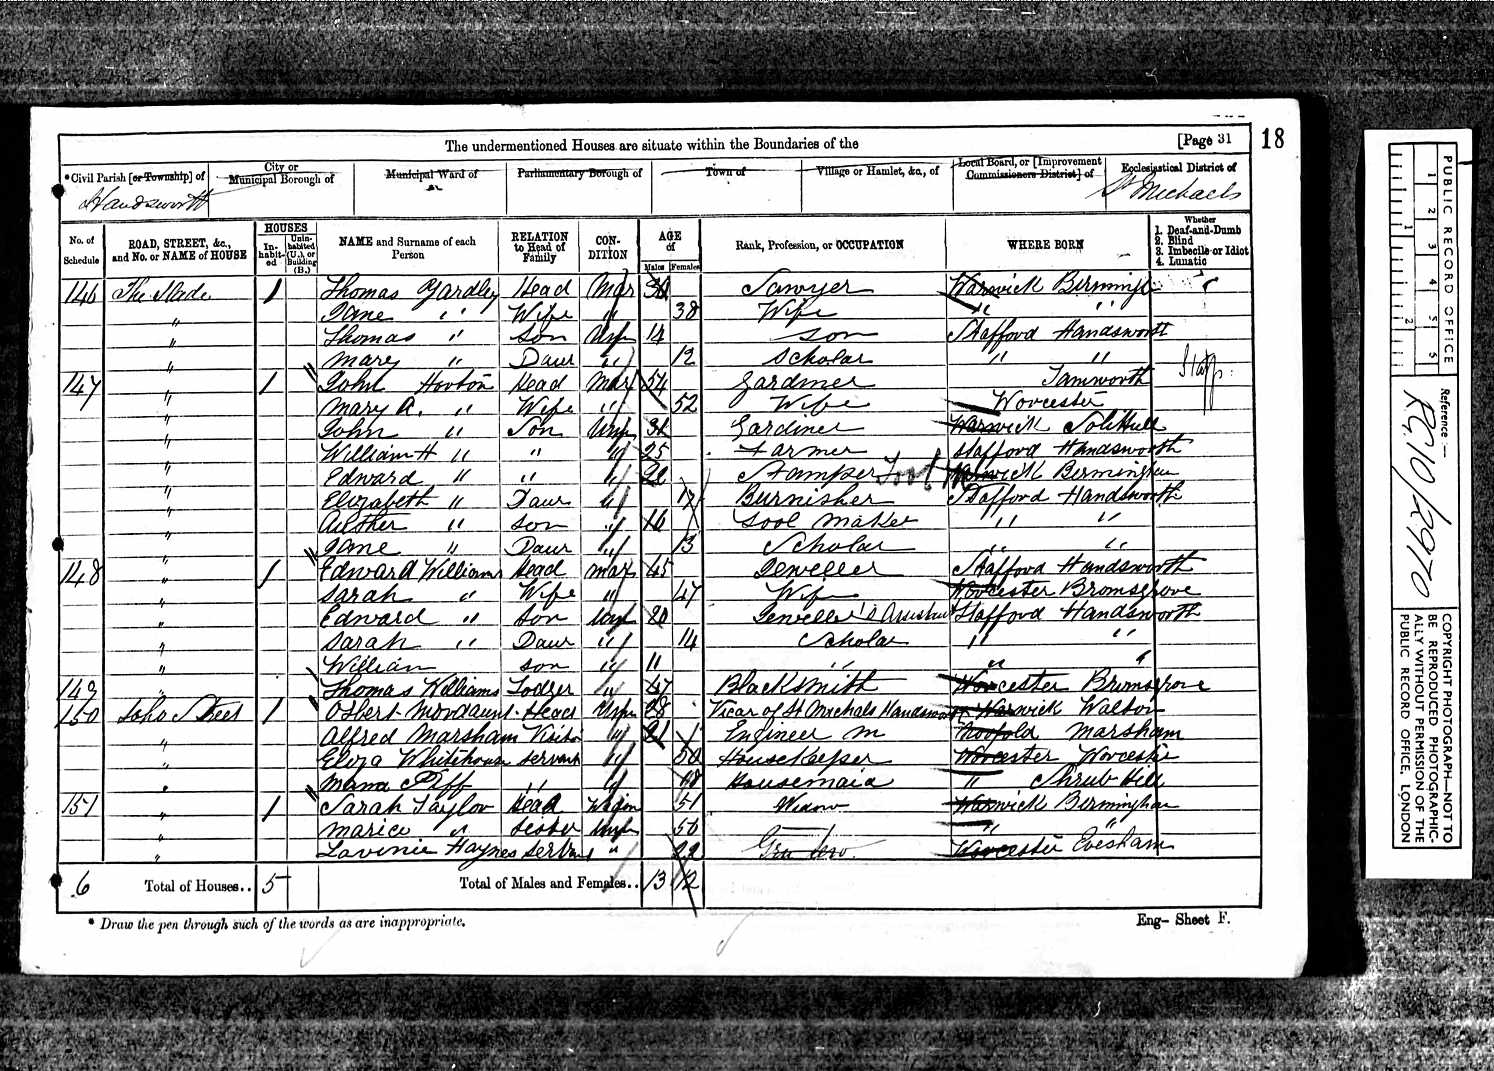 The undermentioned Houses are situate within the Boundaries of the [Page 31 18
* Civil Parish [or Township] of City or Municipal Borough of Municipal Ward of Parliamentary Borough of Town of Village or Hamlet, &c., of Local Board, or [Improvement Commissioners District] of Ecclesiastical District of
Handsworth St Michaels
No. of Schedule ROAD, STREET, &c., and No. or NAME of HOUSE HOUSES In-habit-ed Unin-habited (U.), or Building (B.) NAME and Surname of each Person RELATION to Head of Family CON-DITION AGE of Males Females Rank, Profession, or OCCUPATION WHERE BORN Whether 1. Deaf-and-Dumb 2. Blind 3. Imbecile or Idiot 4. Lunatic
146 The Slade 1 Thomas Yardley Head Mar Sawyer Warwick Birmingh
" Jane " Wife " 38 Wife " "
" Thomas " Son Unm 14 Son Stafford Handsworth
" Mary " Daur " 12 Scholar " "
147 " 1 John Horton Head Mar 54 Gardiner Tamworth
" Mary A. " Wife " 52 Wife Worcester
" John " Son Unm 31 Gardiner Warwick Solihull
" William H " " " 25 Farmer Stafford Handsworth
" Edward " " " 22 Stamper Tool Warwick Birmingham
" Elizabeth " Daur " 17 Burnisher Stafford Handsworth
" Auther " Son " 16 Tool Maker " "
" Jane " Daur " 13 Scholar " "
148 " 1 Edward Williams Head Mar 45 Jeweller Stafford Handsworth
" Sarah " Wife " 47 Wife Worcester Bromsgrove
" Edward " Son Unm 20 Jeweller's Assistant Stafford Handsworth
" Sarah " Daur " 14 Scholar " "
" William Son " 11 " " "
149 " Thomas Williams Lodger " 47 Blacksmith Worcester Bromsgrove
150 Soho Street 1 Osbert Mordaunt Head Unm 28 Vicar of St Michals Handsworth Warwick Walton
" Alfred Marsham Visitor " 21 Engineer M Norfold Marsham
" Eliza Whitehouse Servant " 50 HouseKeeper Worcester Worcester
" Piff " " 18 Housemaid " Shrub Hill
151 " 1 Sarah Taylor Head Widow 51 Widow Warwick Birmingham
" Sister Unm 56 " "
" Lavinie Haynes Servant " 22 Gen Serv. Worcester Evesham
6 Total of Houses.. 5 Total of Males and Females.. 13 12
* Draw the pen through such of the words as are inappropriate.
Eng- Sheet F.
PUBLIC RECORD OFFICE
1 2 3 4 5 6
1 2
Reference:-
RG 10/2970
COPYRIGHT PHOTOGRAPH—NOT TO
BE REPRODUCED PHOTOGRAPHIC-
ALLY WITHOUT PERMISSION OF THE
PUBLIC RECORD OFFICE, LONDON